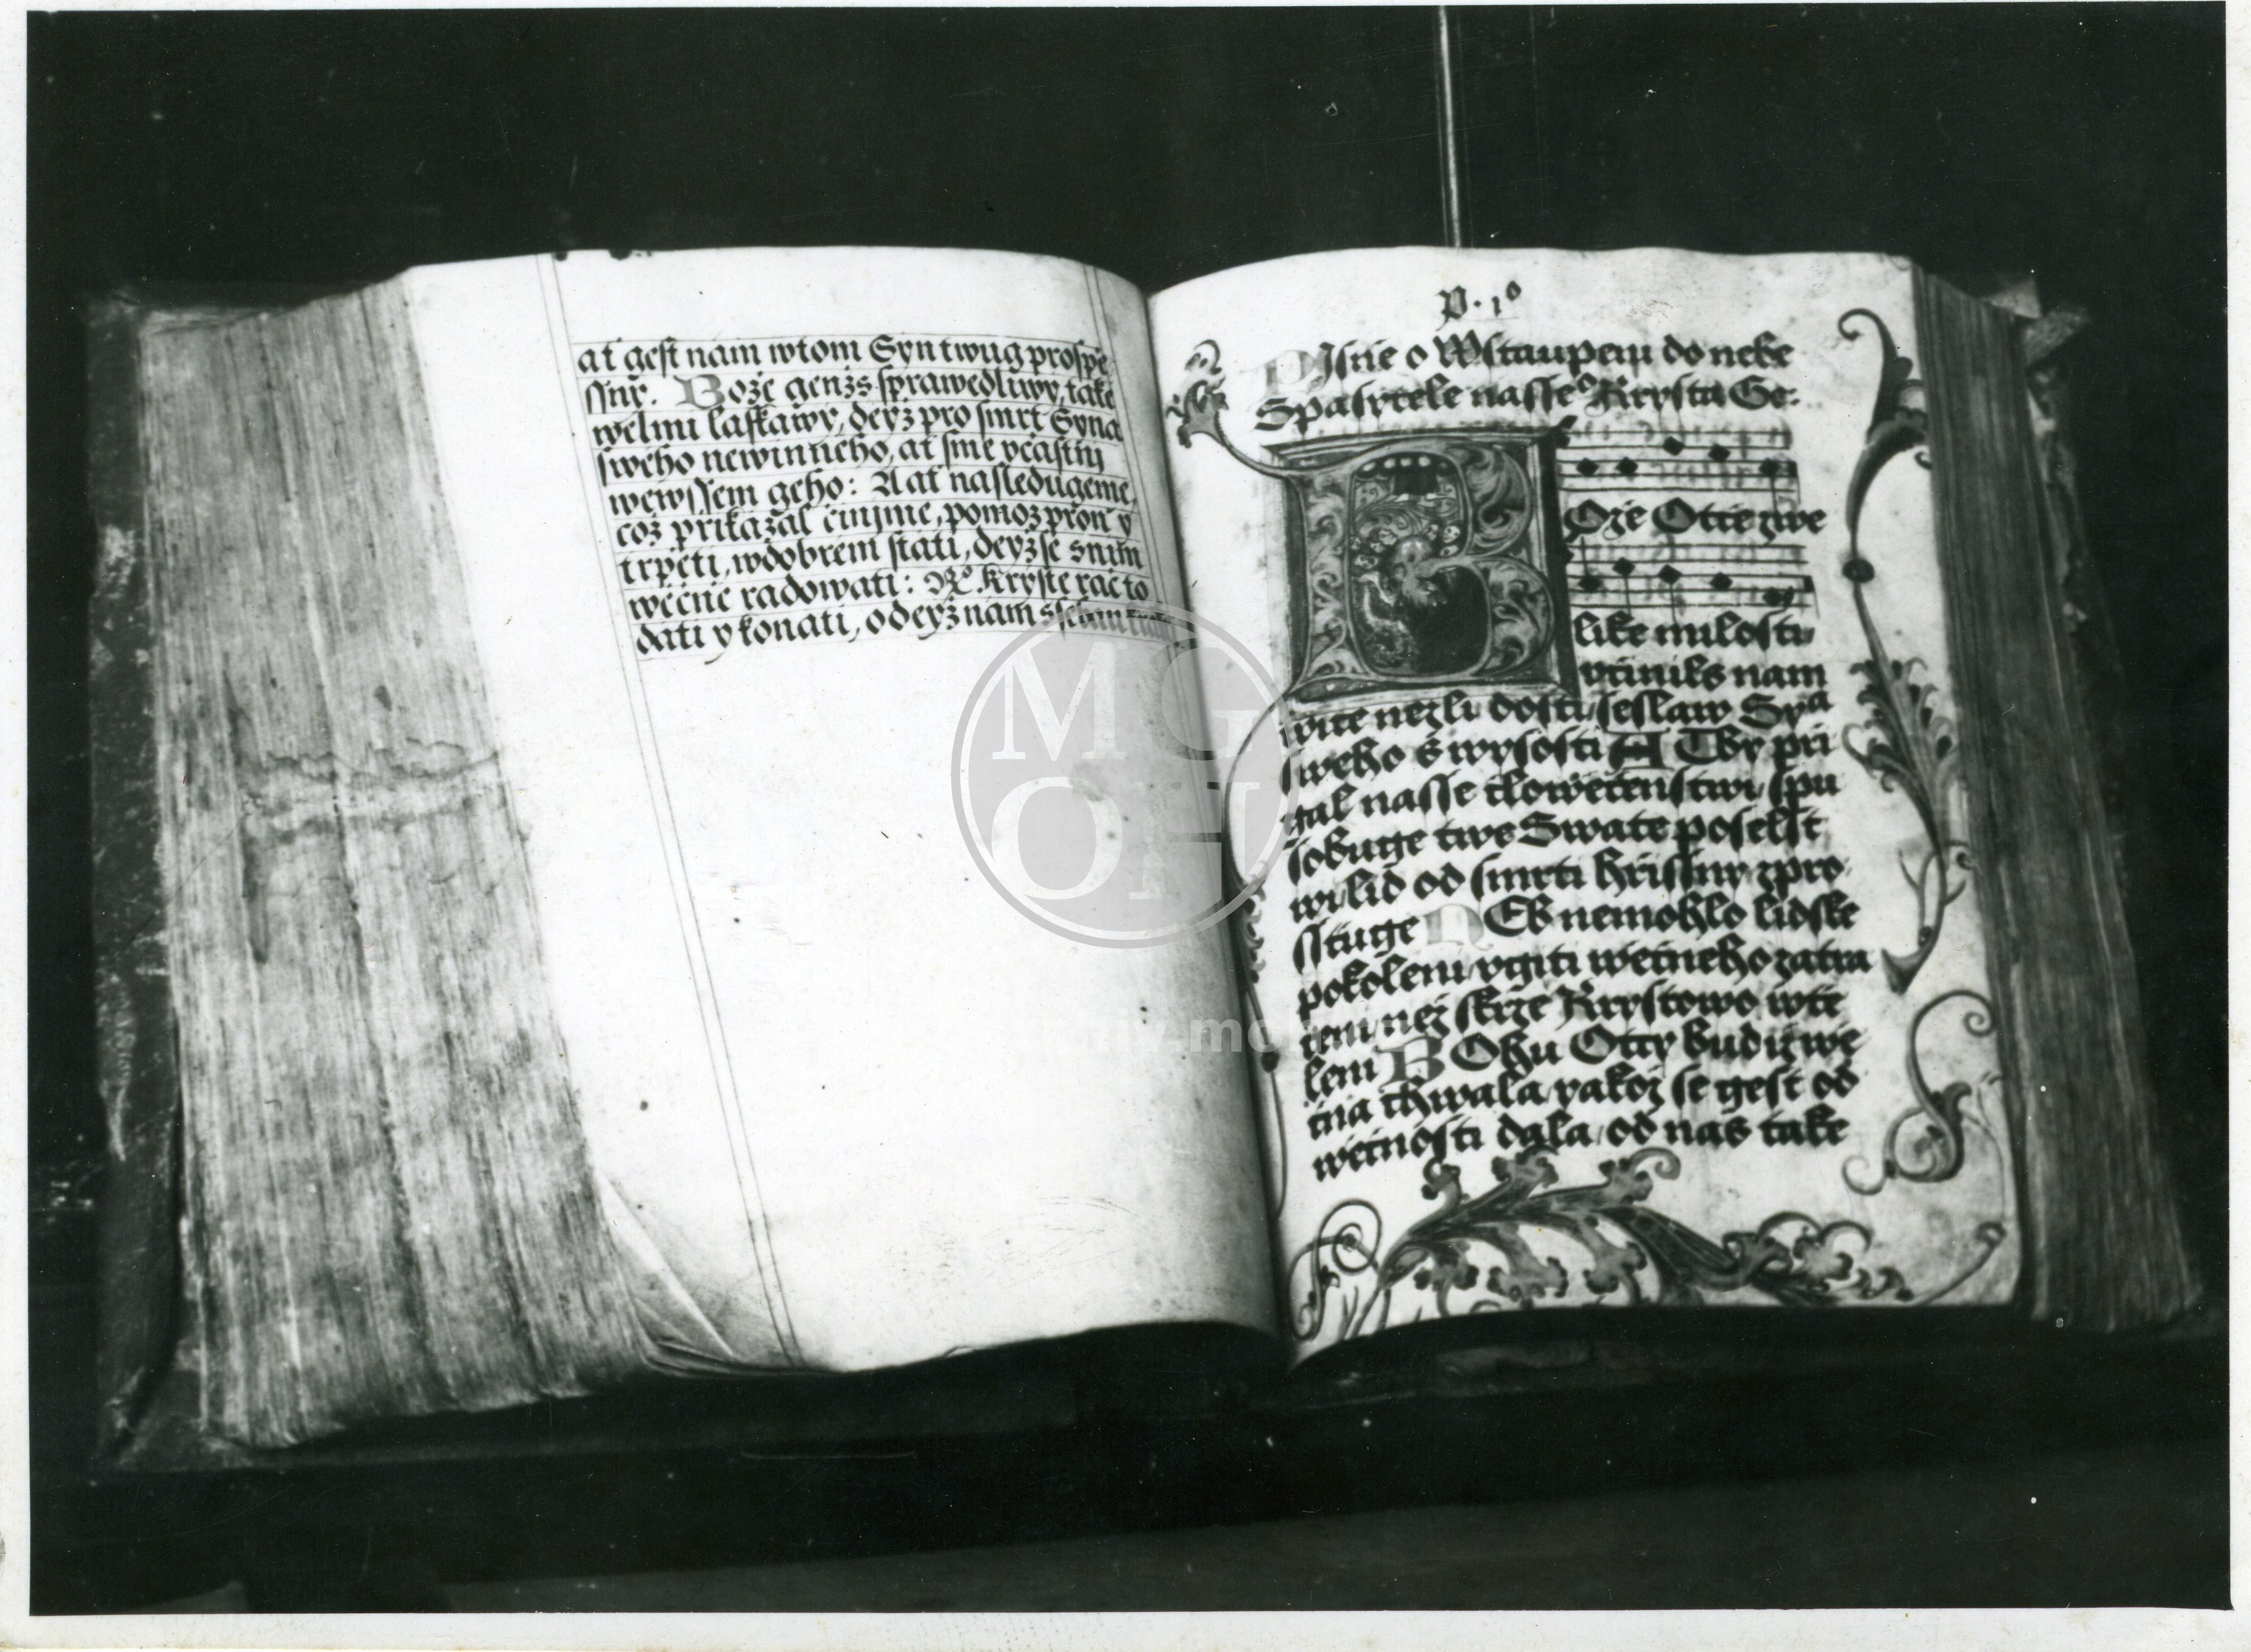 at gest nam wtom Syn twug prospě
ssny. Bože genžs sprawedliwy, také
welmi laskawy, deyž pro smrt Syna
swého newinného, at sme včastni
wewssem geho: A at nasledugeme,
což přikázal činjme, pomoz proň y
trpěti, wdobrém stati, deyž se snim
wěčně radowati: Rº. Kryste rač to
dati y konati, o deyž nam
P. 1º
PJsně o Wstaupeni do nebe
Spasytele nasseº Krysta Ge:
BOže Otče twe
like milosti
včinils nam
wice nežli dosti, seslaw Syª
sweho s wysosti A Tby při
gal nasse čłowěčenstwi, spu
sobuge twe Swate poselst
wi, lid od smrti hřissny zpro
sstuge NEb nemohlo lidske
pokoleni vgiti wěčneho zatra
ceni, než skrze Krystowo wtě
leni BOhu Otcy budiž wě
čna chwala, yakož se gest od
wěčnosti dala, od nas take
MG
OH